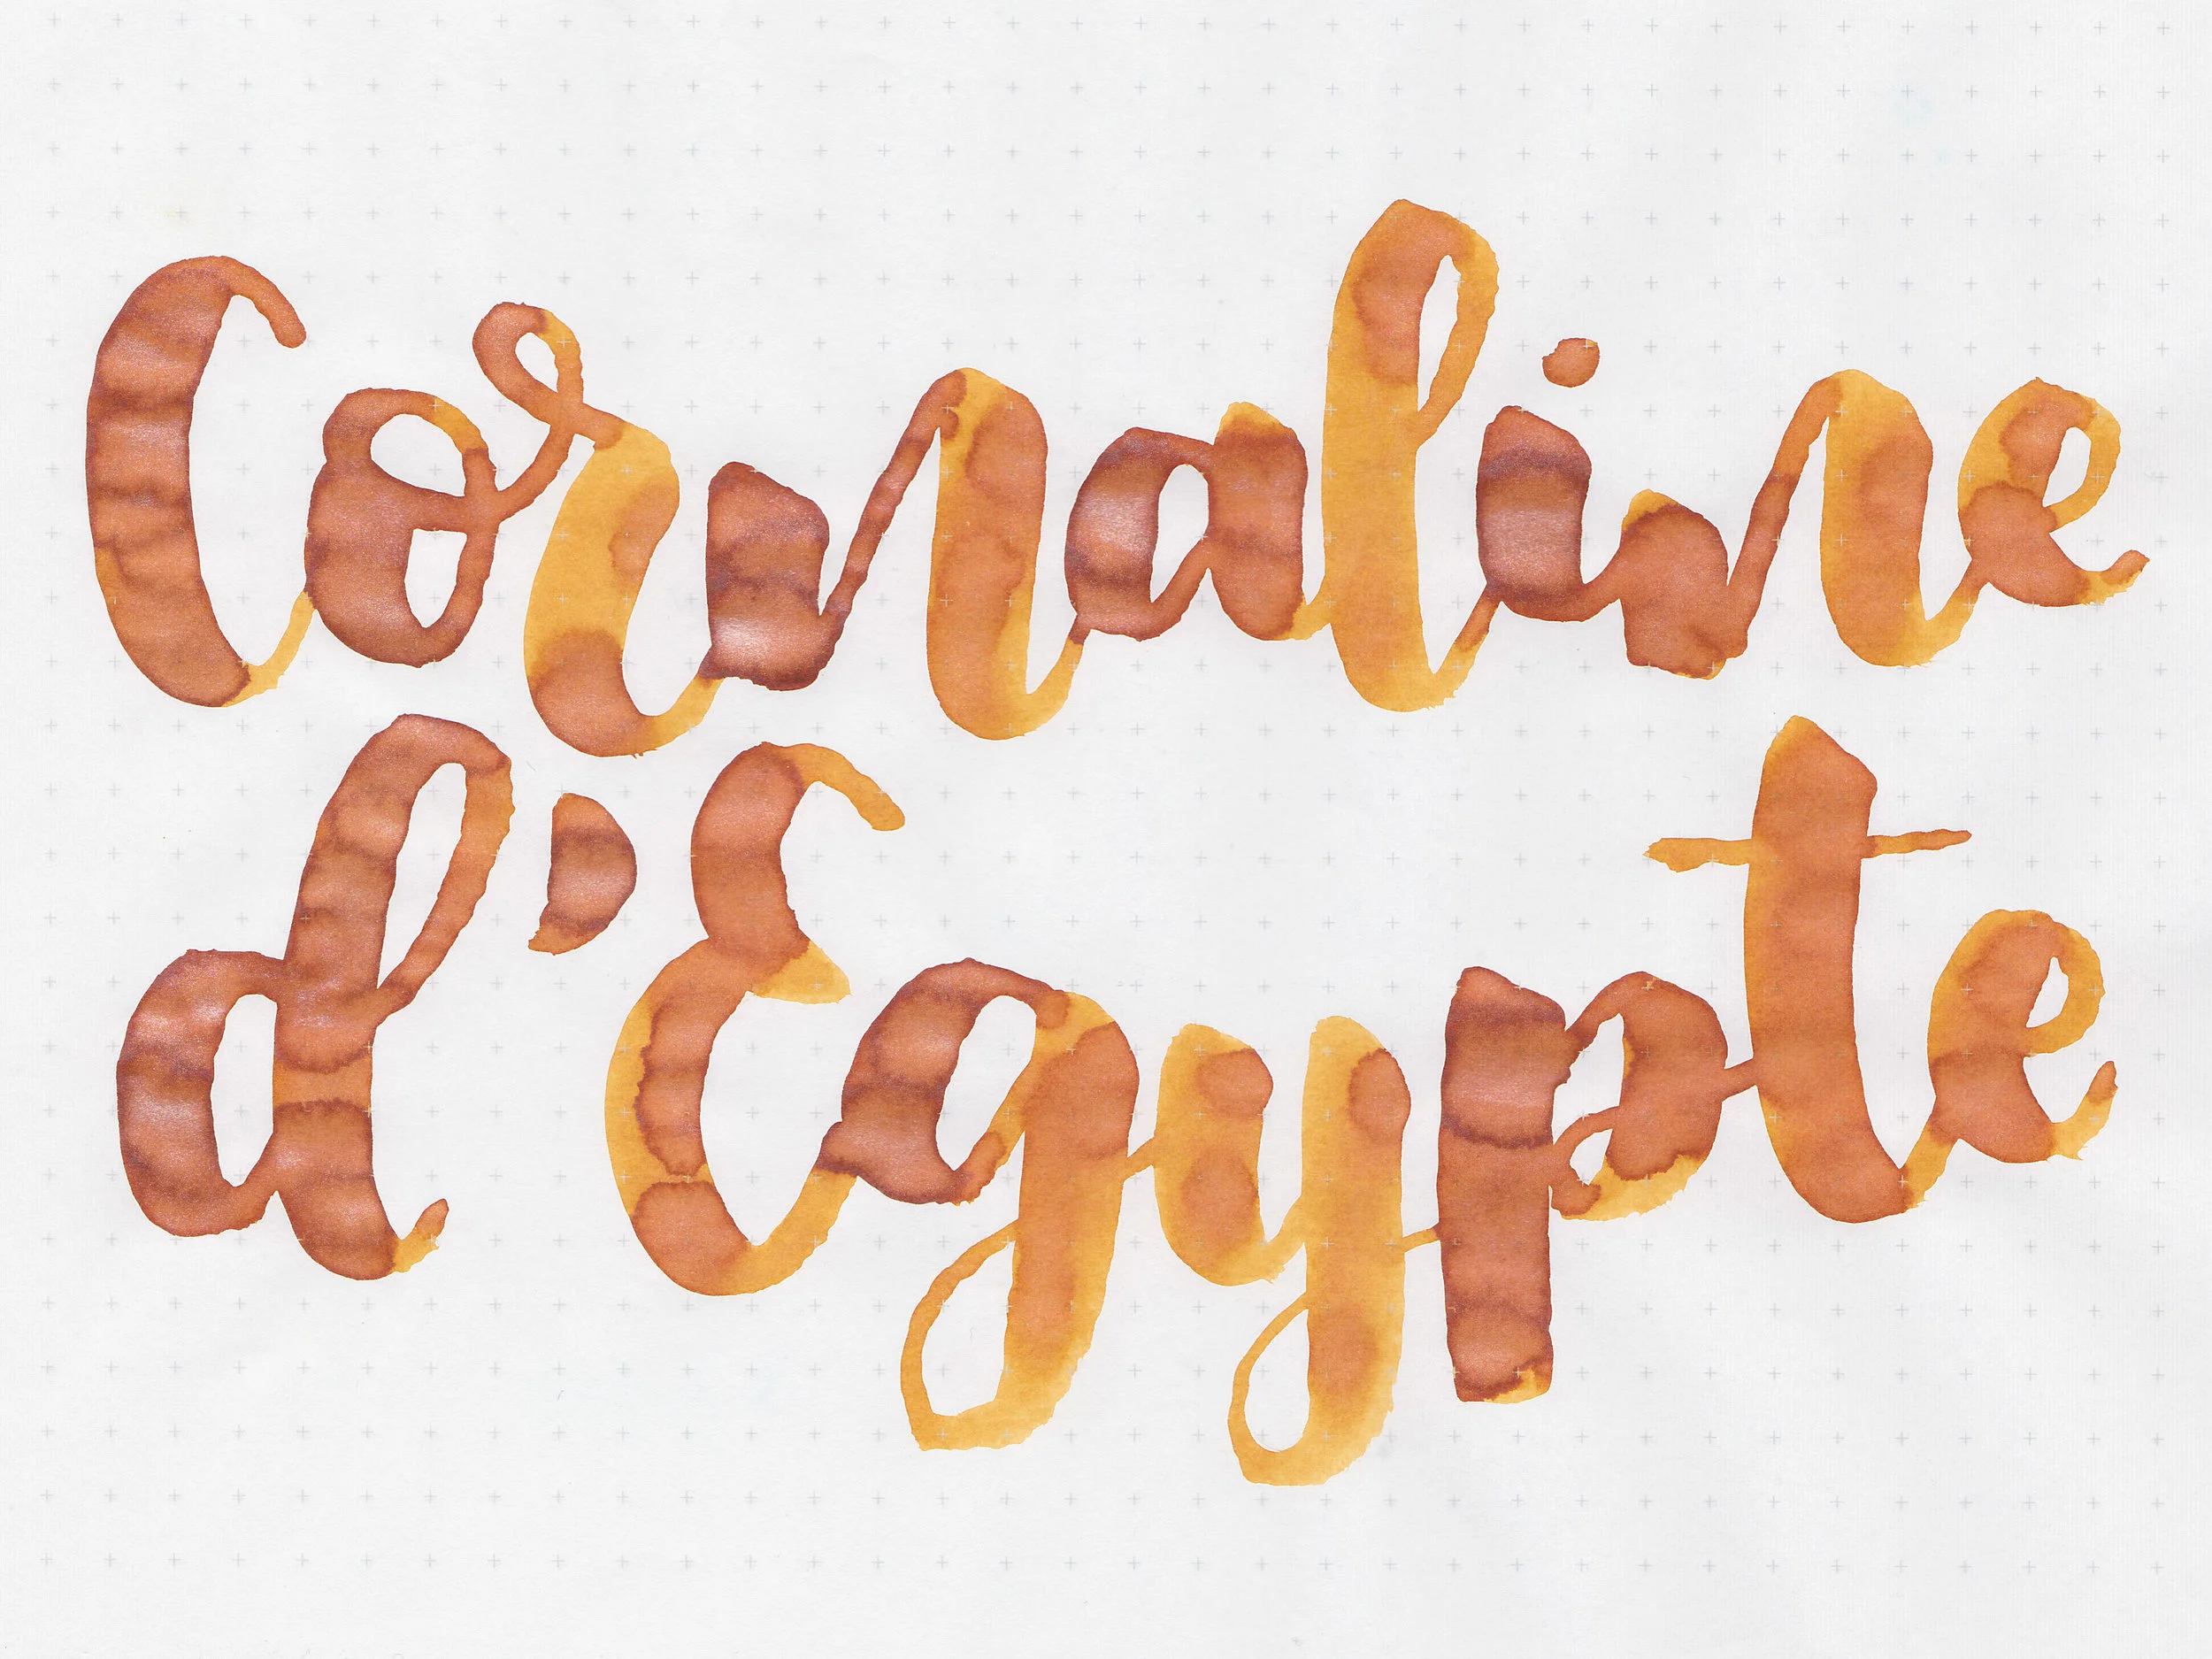 Cornaline
d'Egypte